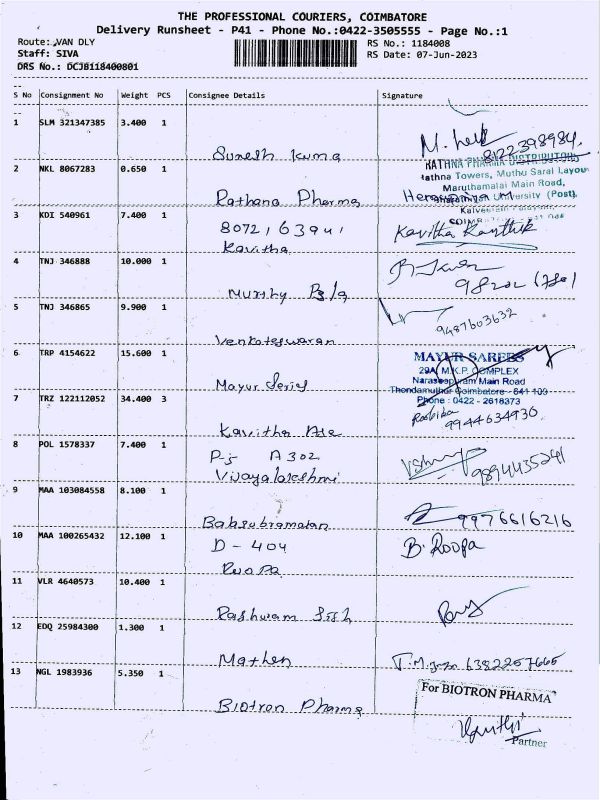 THE PROFESSIONAL COURIERS, COIMBATORE
Delivery Runsheet - P41 - Phone No.:0422-3505555 - Page No.:1
Route: VAN DLY
RS No.: 1184008
Staff: SIVA
RS Date: 07-Jun-2023
DRS No.: DCJB118400801
S No Consignment No Weight PCS Consignee Details Signature
1 SLM 321347385 3.400 1
Suresh Kuma
8122398984.
2 NKL 8067283 0.650 1
Rathana Pharma
RATHNA PHARMA DISTRIBUTORS
Rathna Towers, Muthu Saral Layout
Maruthamalai Main Road,
University (Post),
3 KDI 540961 7.400 1
8072163941
Kavitha
Kavitha Karthik
4 TNJ 346888 10.000 1
Murthy
98202
5 TNJ 346865 9.900 1
Venkateswaran
9487603632
6 TRP 4154622 15.600 1
Mayur
MAYUR SAREES
29A, M.K.P. COMPLEX
Naraseepuram Main Road
Thondamuthur Coimbatore - 641 109
Phone : 0422 - 2618373
7 TRZ 122112052 34.400 3
Kavitha
9944634930
8 POL 1578337 7.400 1
A302
Vijayalakshmi
9894435241
9 MAA 103084558 8.100 1
Balasubramanian
9976616216
10 MAA 100265432 12.100 1
D - 404
Roopa
B. Roopa
11 VLR 4640573 10.400 1
12 EDQ 25984300 1.300 1
Mathen
6382257665
13 NGL 1983936 5.350 1
Biotron Pharma
For BIOTRON PHARMA
Partner